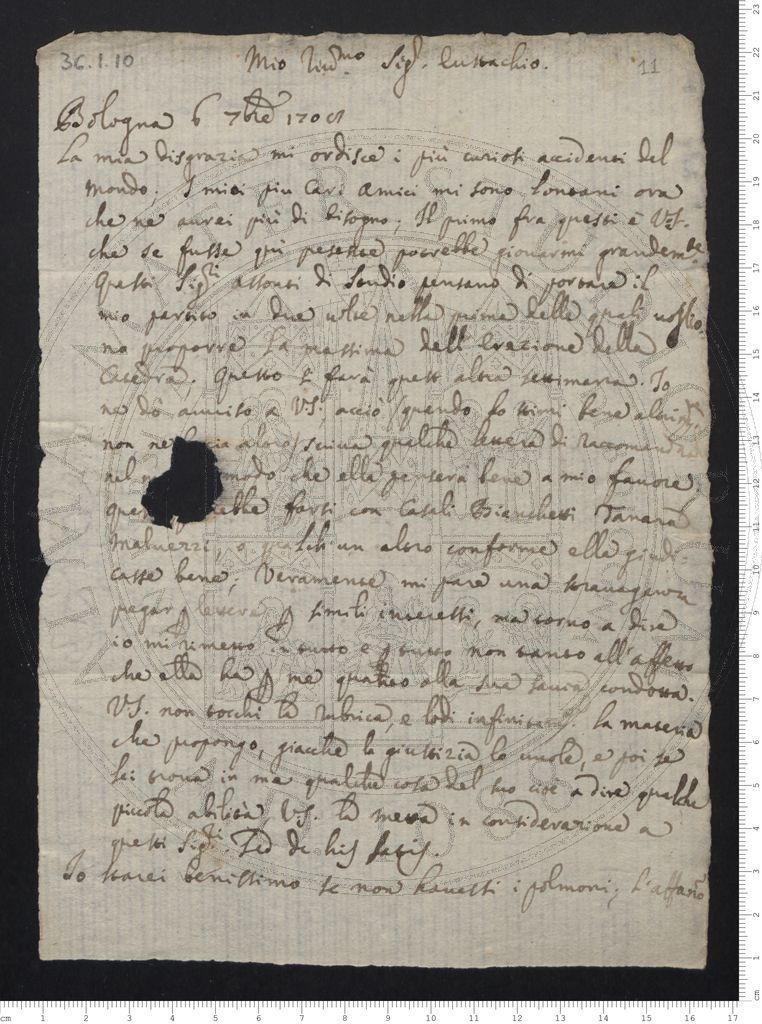 36.1.10
11
Mio Sig.r Eustachio.
Bologna 6 7bre 1708
La mia disgrazia mi ordisce i più curiosi accidenti del
mondo. I miei piu cari Amici mi sono lontani ora
che ne aurei più di bisogno; Il primo fra questi è V.S.
che se fusse quì potrebbe giouarmi grandemte
Questi Sig.ri assonti di Studio pensano di portare il
mio partito in due uolte nella prima delle quali uoglio
no proporre la massima dell' Erezione della
Catedra, questo si farà quest altra settimana. Io
ne dò auuiso a V.S. acciò, quando lo stimi bene
non ne scriua qualche lettera di raccomandaz
nel modo che ella pensera bene a mio fauore;
ques rebbe farsi con Casali Bianchetti Tanara
Maluezzi, o qualch un altro conforme ella giudi-
casse bene; Veramente mi pare una strauaganza
pregar p lettera p simili interessi, ma torno a dire
io mi rimetto in tutto e p tutto non tanto all'affetto
che ella ha p me quanto alla sua sauia condotta.
V.S. non tocchi la rubrica, e lodi la materia
che propongo, giacche la giustizia lo uuole, e poi se
lei troua in me qualche cosa del suo cioè a dire qualche
piccola abilità, V.S. la metta in considerazione a
questi Sig.ri. Sed de his satis.
Io starei benissimo se non hauessi i polmoni; L'affano